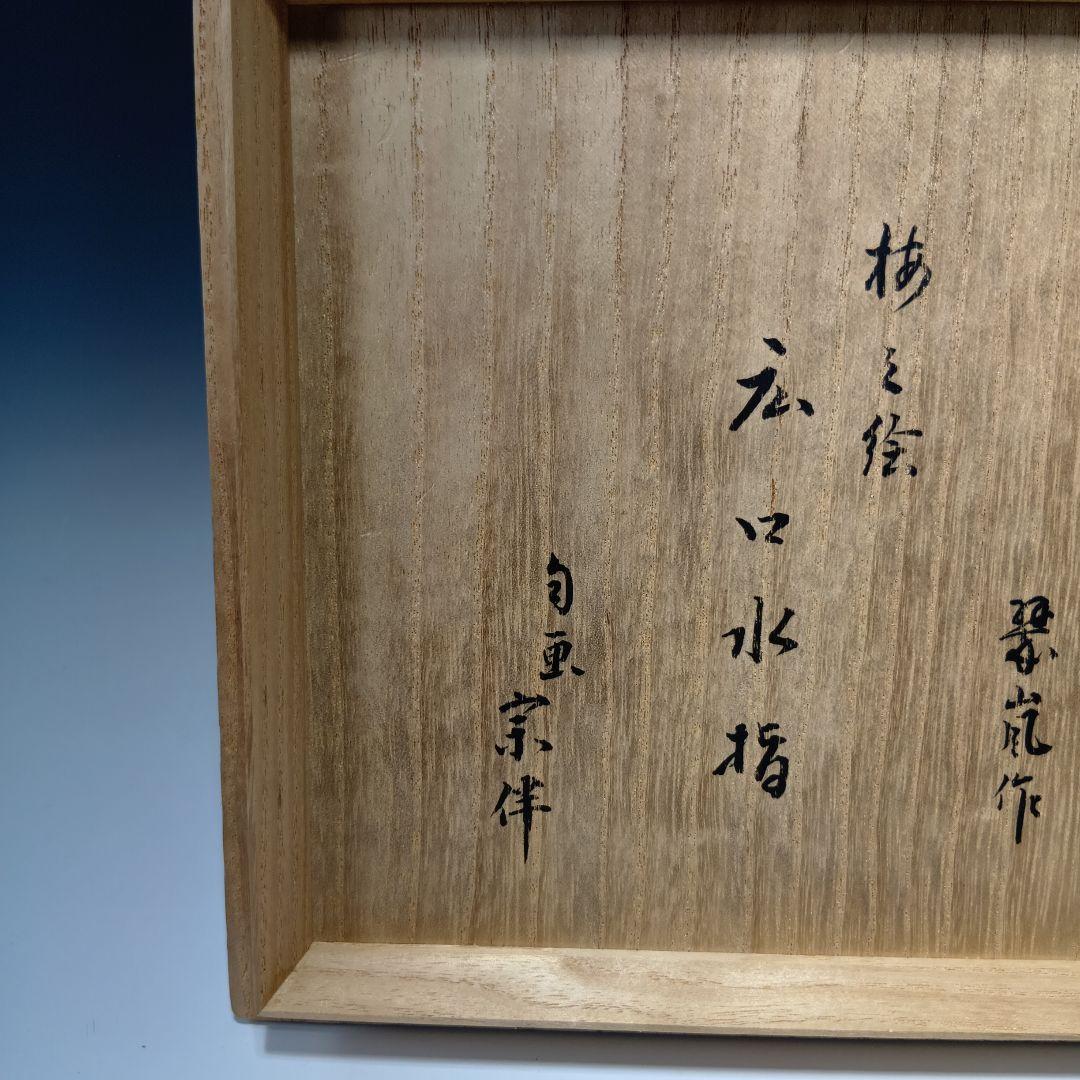 翠嵐作
梅之絵
広口水指
自画
宗伴